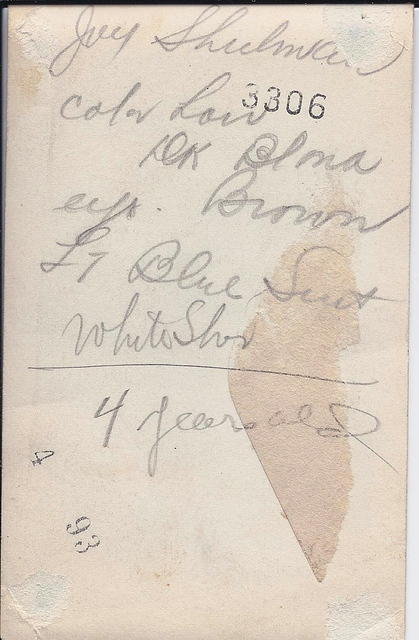 Joey Shulman
3306
color hair
DK Blond
eye. Brown
LT Blue Suit
White Shoe
4 years old
4
93